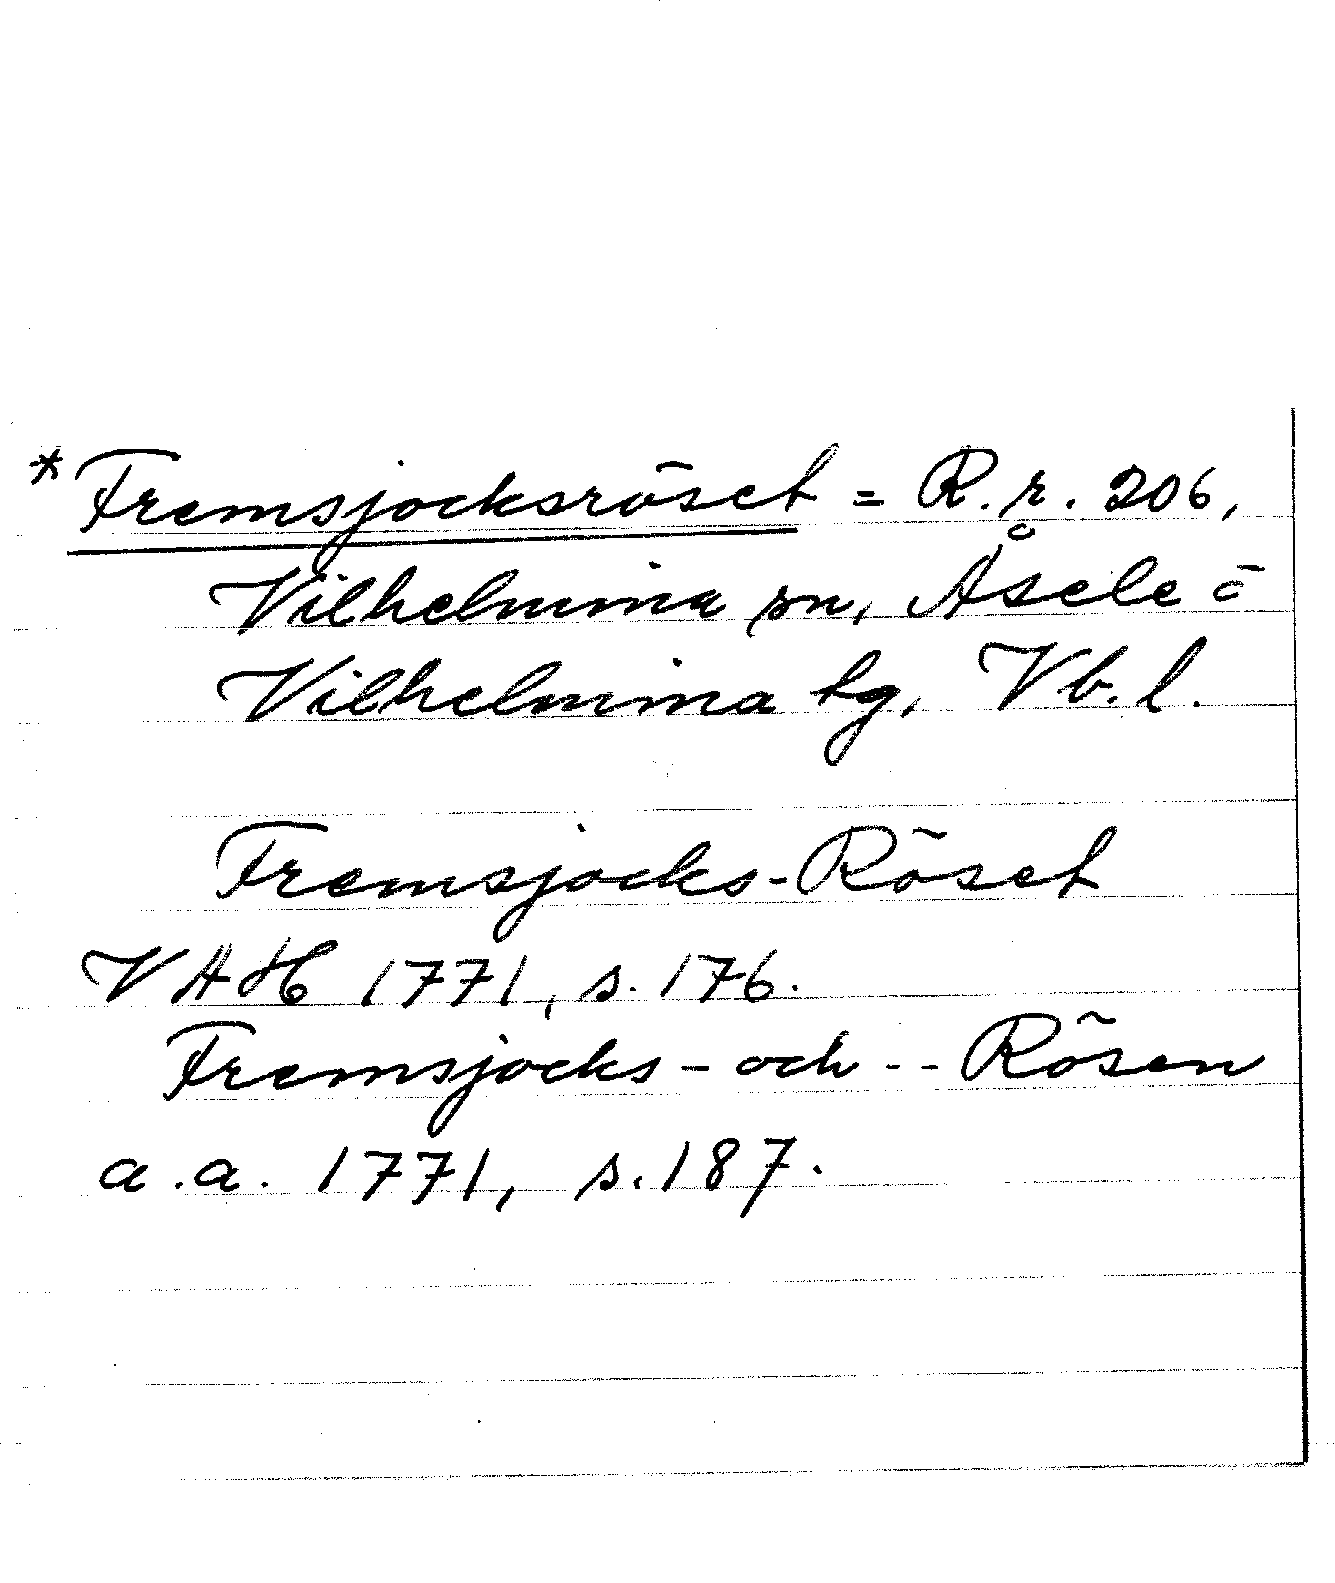 *Fremsjocksröset = R.r. 206,
Vilhelmina sn, Åsele o
Vilhelmina tg, Vb. l.
Fremsjocks-Röset
VAH 1771, s. 176.
Fremsjocks - och -- Rösen
a.a. 1771, s. 187.